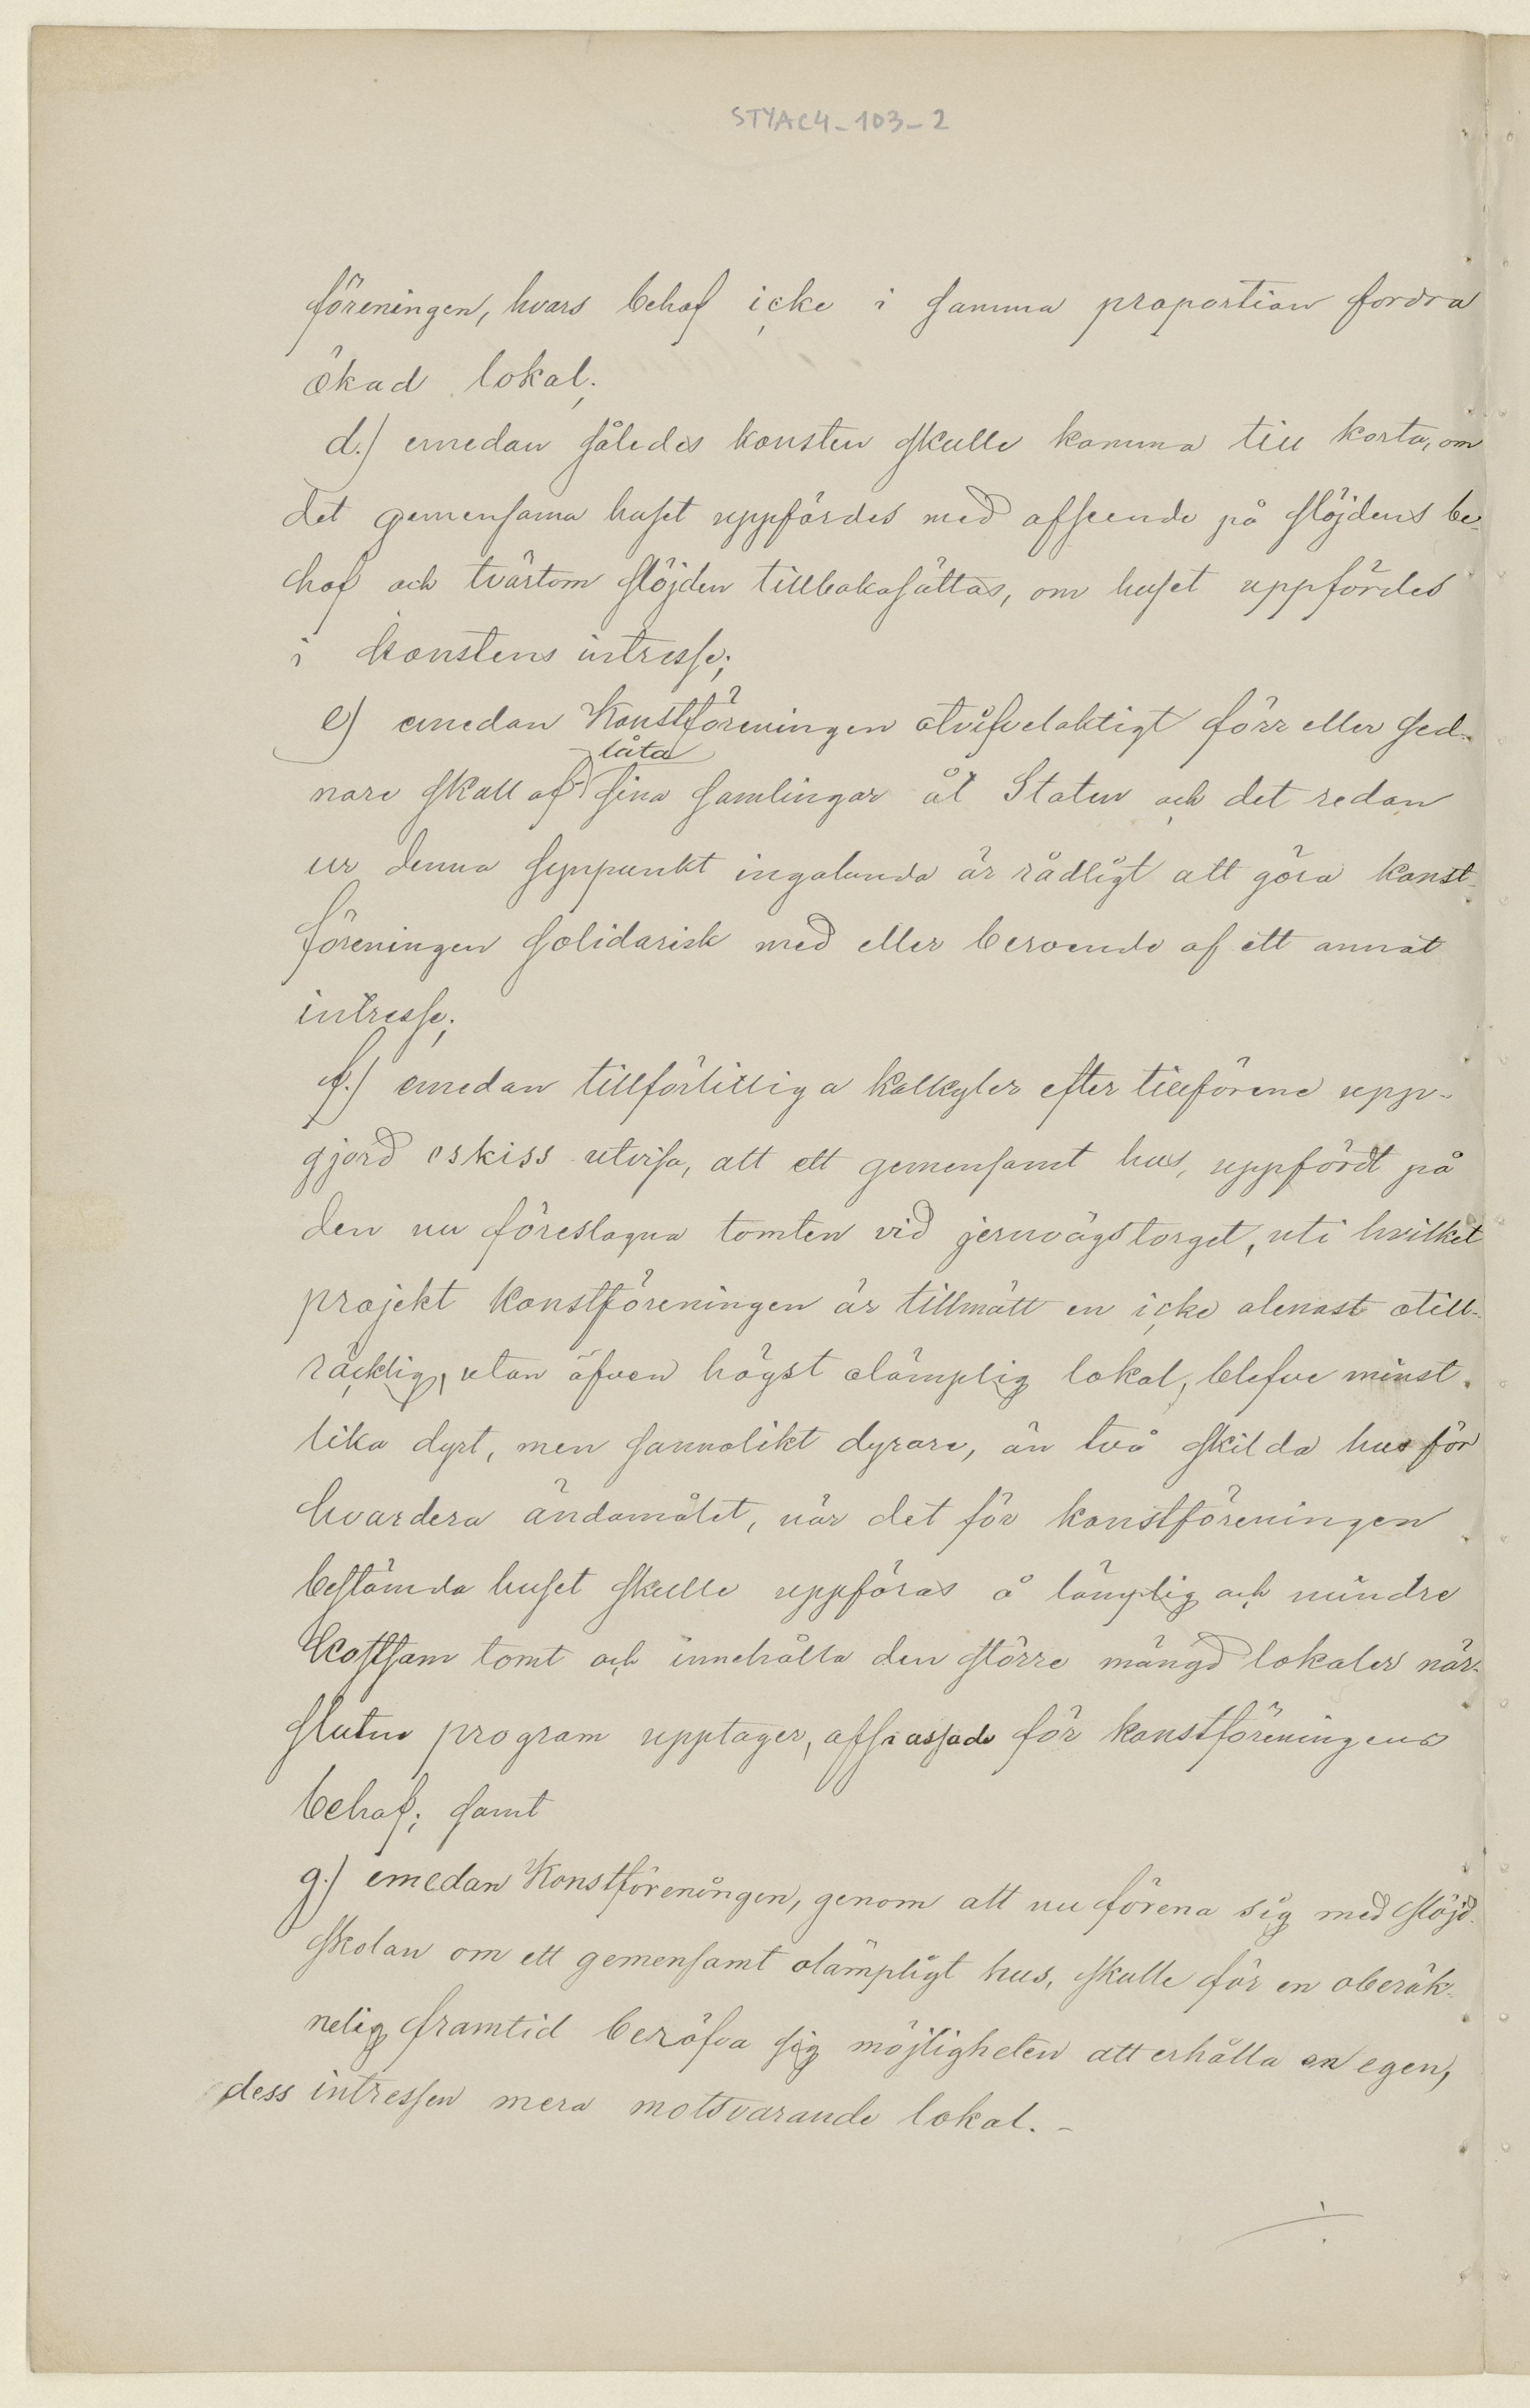 STYAC4-103-2
föreningen, hvars behof icke i samma proportion fordra
ökad lokal;
d.) emedan således konsten skulle komma till korta, om
det gemensama huset uppfördes med afseende på slöjdens be-
hof och tvärtom slöjden tillbakasättas, om huset uppfördes
i konstens intresse;
e) emedan Konstföreningen otvifvelaktigt förr eller sed-
låta
nare skall af- sina samlingar åt Staten och det redan
ur denna synpunkt ingalunda är rådligt att göra konst-
föreningen solidarisk med eller beroende af ett annat
intresse;
f.) emedan tillförlitliga kalkyler efter tillförene upp-
gjord eskiss utvisa, att ett gemensamt hus, uppfördt på
den nu föreslagna tomten vid jernvägstorget, uti hvilket
projekt konstföreningen är tillmätt en icke alenast otill-
räcklig, utan äfven högst olämplig lokal, blefve minst
lika dyrt, men sannolikt dyrare, än två skilda hus för
hvardera ändamålet, när det för konstföreningen
bestämda huset skulle uppföras å lämplig och mindre
kostsam tomt och innehålla den större mängd lokaler när-
slutne program upptager, affassade för konstföreningens
behof; samt
g.) emedan Konstföreningen, genom att nu förena sig med slöjd-
skolan om ett gemensamt olämpligt hus, skulle för en oberäk-
nelig framtid beröfva sig möjligheten att erhålla en egen,
dess intressen mera motsvarande lokal. -